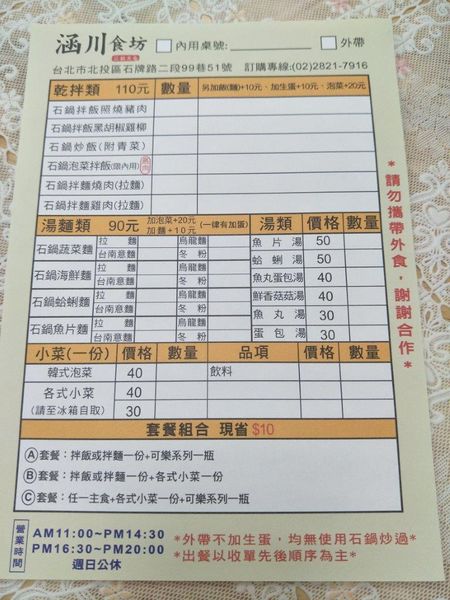 涵川食坊 □內用桌號:________ □外帶
台北市北投區石牌路二段99巷51號 訂購專線:(02)2821-7916
乾拌類 110元 數量 另加飯(麵)+10元、加生蛋+10元、泡菜+20元
石鍋拌飯照燒豬肉
石鍋拌飯黑胡椒雞柳
石鍋炒飯(附青菜)
石鍋泡菜拌飯(限內用)
石鍋拌麵燒肉(拉麵)
石鍋拌麵雞肉(拉麵)
湯麵類 90元 加泡菜+20元 加麵+10元 (一律有加蛋)
石鍋蔬菜麵 拉麵 烏龍麵
台南意麵 冬粉
石鍋海鮮麵 拉麵 烏龍麵
台南意麵 冬粉
石鍋蛤蜊麵 拉麵 烏龍麵
台南意麵 冬粉
石鍋魚片麵 拉麵 烏龍麵
台南意麵 冬粉
湯類 價格 數量
魚片湯 50
蛤蜊湯 50
魚丸蛋包湯 40
鮮香菇菇湯 40
魚丸湯 30
蛋包湯 30
小菜(一份) 價格 數量 品項 價格 數量
韓式泡菜 40 飲料
各式小菜 40
(請至冰箱自取) 30
套餐組合 現省$10
Ⓐ套餐:拌飯或拌麵一份+可樂系列一瓶
Ⓑ套餐:拌飯或拌麵一份+各式小菜一份
Ⓒ套餐:任一主食+各式小菜一份+可樂系列一瓶
營業時間
AM11:00~PM14:30
PM16:30~PM20:00
週日公休
*外帶不加生蛋,均無使用石鍋炒過*
*出餐以收單先後順序為主*
*請勿攜帶外食,謝謝合作*